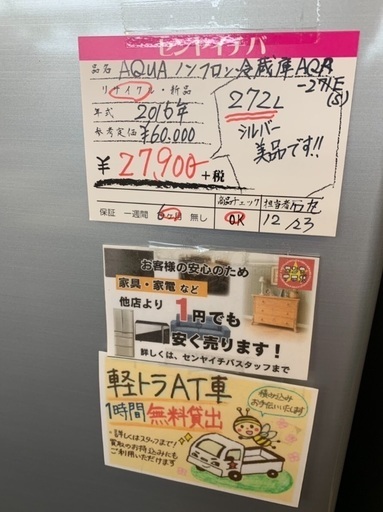 センヤイチバ
品名 AQUA ノンフロン冷蔵庫 AQR
-271E
(S)
リサイクル・新品
272L
年式 2015年
シルバー
参考定価 ¥60.000
美品です!!
¥27,900 +税
部品チェック 担当者
保証 一週間 6ヶ月 無し OK 12/23
お客様の安心のため
家具・家電 など
他店より 1円でも
安く売ります!
詳しくは、センヤイチバスタッフまで
軽トラAT車
1時間 無料貸出
積みこみも
お手伝いいたします
・詳しくはスタッフまで!
買取のお持込みにも
ご利用いただけます